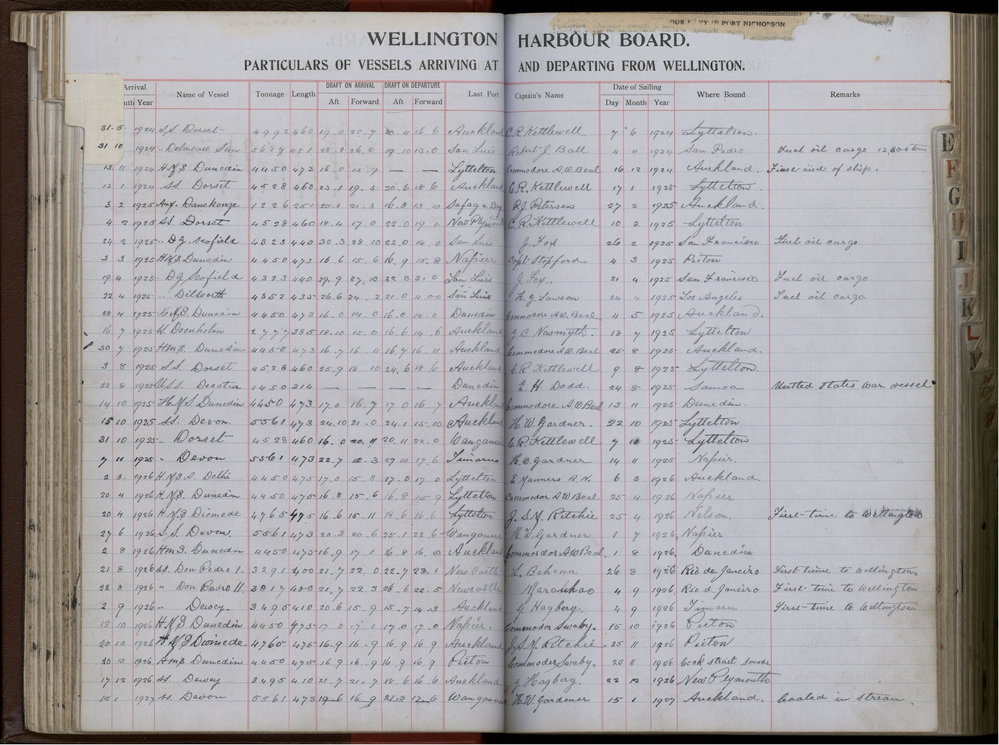 OUR NAVY IN PORT NICHOLSON.
WELLINGTON HARBOUR BOARD.
PARTICULARS OF VESSELS ARRIVING AT AND DEPARTING FROM WELLINGTON.
Arrival Name of Vessel Tonnage Length DRAFT ON ARRIVAL DRAFT ON DEPARTURE Last Port Captain's Name Date of Sailing Where Bound Remarks
Month Year Aft Forward Aft Forward Day Month Year
31 5 1924 S.S. Dorset 460 Auckland C.R. Kettlewell 7 6 1924 Lyttelton
31 10 1924 " Delaware Sun San Luis Robert J. Ball 4 11 1924 San Pedro Fuel oil cargo
11 1924 H.M.S Dunedin 4450 473 16.0 15.9 — — Lyttelton Commodore A.W. Beal 16 12 1924 Auckland First visit of ship.
12 1 SS. Dorset 4528 460 Auckland C.R. Kettlewell 17 1 1925 Lyttelton
3 2 1925 Aux. 1226 251 P.J. Petersen 27 2 1925 Auckland
4 2 1925 SS. Dorset 4528 460 18.4 17.0 New Plymouth C.R. Kettlewell 10 2 1925 Lyttelton
24 2 1925 " D.G. Scofield 4323 440 30.3 28.10 22.0 14.0 San Luis J. Fox 26 2 1925 San Francisco Fuel oil cargo
3 3 1925 H.M.S Dunedin 4450 473 16.6 15.6 16.9 15.8 Napier Capt. 4 3 1925 Picton
19 4 1925 D.G. Scofield 4323 440 29.9 27.10 San Luis J. Fox. 21 4 1925 San Francisco Fuel oil cargo
22 4 1925 " Dilworth 4352 435 26.6 24.2 San Luis H.G. Lawson 24 4 1925 Los Angeles Fuel oil cargo
4 1925 H.M.S Dunedin 4450 473 16.0 14.0 16.0 14.0 Dunedin Commodore A.W. Beal 4 5 1925 Auckland.
16 7 1925 2777 385 18.10 15.0 16.6 14.6 Auckland J.B. Nasmyth. 18 7 1925 Lyttelton
30 7 1925 H.M.S. Dunedin 4450 473 16.7 16.11 16.7 16.11 Auckland Commodore A.W. Beal 25 8 1925 Auckland.
3 8 1925 S.S. Dorset 4528 460 25.9 18.10 24.6 18.6 Auckland C.R. Kettlewell 9 8 1925 Lyttelton
22 8 1925 U.S.S. Decatur 1450 314 — — — — Dunedin E.H. Dodd. 24 8 1925 Samoa United States war vessel
14 10 1925 H.M.S Dunedin 4450 473 17.0 16.7 17.0 16.7 Auckland Commodore A.W. Beal 13 11 1925 Dunedin.
15 10 1925 SS. Devon 5561 473 24.10 21.0 24.1 15.10 Auckland H.W. Gardner. 22 10 1925 Lyttelton
31 10 1925 " Dorset 4528 460 16.0 20.11 20.11 22.0 Wanganui C.R. Kettlewell 7 1925 Lyttelton
7 11 1925 " Devon 5561 473 22.7 12.3 27.10 17.6 Timaru H.W. Gardner 14 11 1925 Napier.
2 3 1926 H.M.S. Delhi 4450 475 17.0 15.8 17.0 17.0 Lyttelton E Manners R.N. 6 3 1926 Auckland
20 4 1926 H.M.S Dunedin 4450 475 16.8 15.6 16.8 15.9 Lyttelton Commodor A.W. Beal 25 4 1926 Napier
20 4 1926 H.M.S Diomede 4765 475 16.6 15.11 18.6 16.6 Lyttelton J.S.M. Ritchie 25 4 1926 Nelson First time to Wellington
27 6 1926 S.S. Devon. 5561 473 20.3 20.6 25.1 22.6 Wanganui H.W. Gardner 1 7 1926 Napier
2 8 1926 H.M.S. Dunedin 4450 475 16.9 17.1 16.8 16.10 Auckland Commodor A.W. Beal. 1 8 1926 Dunedin
21 8 1926 SS. Don Pedro I. 3291 400 21.7 22.0 22.7 23.1 New Castle L. Bahena 26 8 1926 Rio de Janeiro First time to Wellington.
22 8 1926 " Don Pedro II. 400 21.7 22.3 22.5 Newcastle Maranhao 4 9 1926 Rio d. Janeiro First time to Wellington
2 9 1926 " Dewey. 3495 410 20.6 15.9 15.7 14.3 Auckland G. Hagberg. 4 9 1926 Timaru First time to Wellington
13 10 1926 H.M.S Dunedin 4450 475 17.0 17.0 17.0 17.0 Napier. Commodor Swaby. 15 10 1926 Picton
10 1926 H.M.S Diomede. 4765 475 16.9 16.9 16.9 16.9 Auckland J.S.M. Ritchie 25 11 1926 Picton
20 10 1926 H.M.S Dunedin 4450 475 16.9 16.9 16.9 16.9 Picton Commodor Swaby. 25 11 1926 Cook strait sounds
17 12 1926 SS. Dewey 3495 410 21.7 21.7 18.6 16.6 Auckland G. Hagberg. 22 12 1926 New Plymouth
1 1927 SS. Devon 5561 473 Wanganui H.W. Gardener 15 1 1927 Auckland. Coaled in stream.
E
F
G
H
I
J
K
L